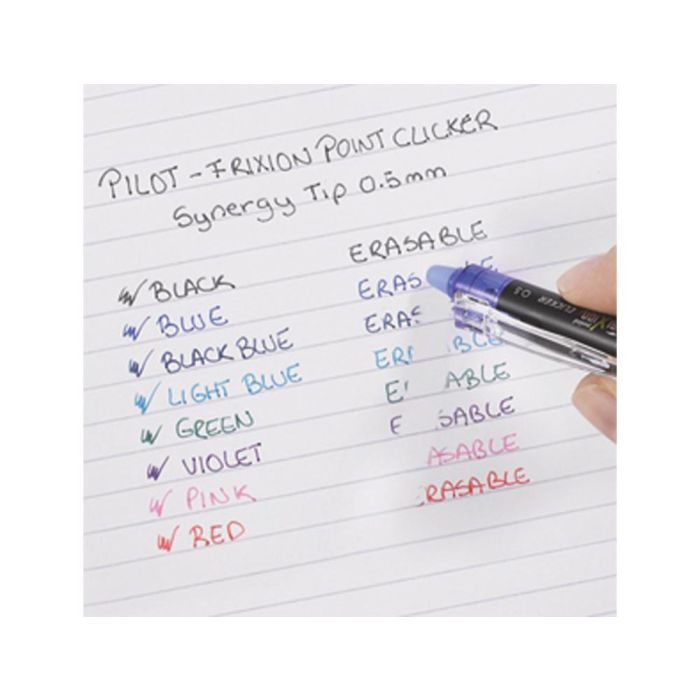 PILOT - FRIXION POINT CLICKER
Synergy Tip 0.5mm
ERASABLE
BLACK ERAS BLE
BLUE ERAS
BLACK BLUE ER ABLE
LIGHT BLUE E ABLE
GREEN E SABLE
VIOLET ASABLE
PINK RASABLE
RED
CLICKER 05